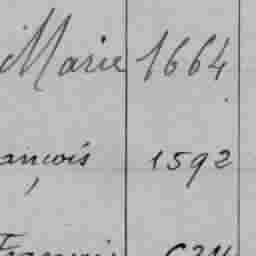 Marie 1664
ançois 1592